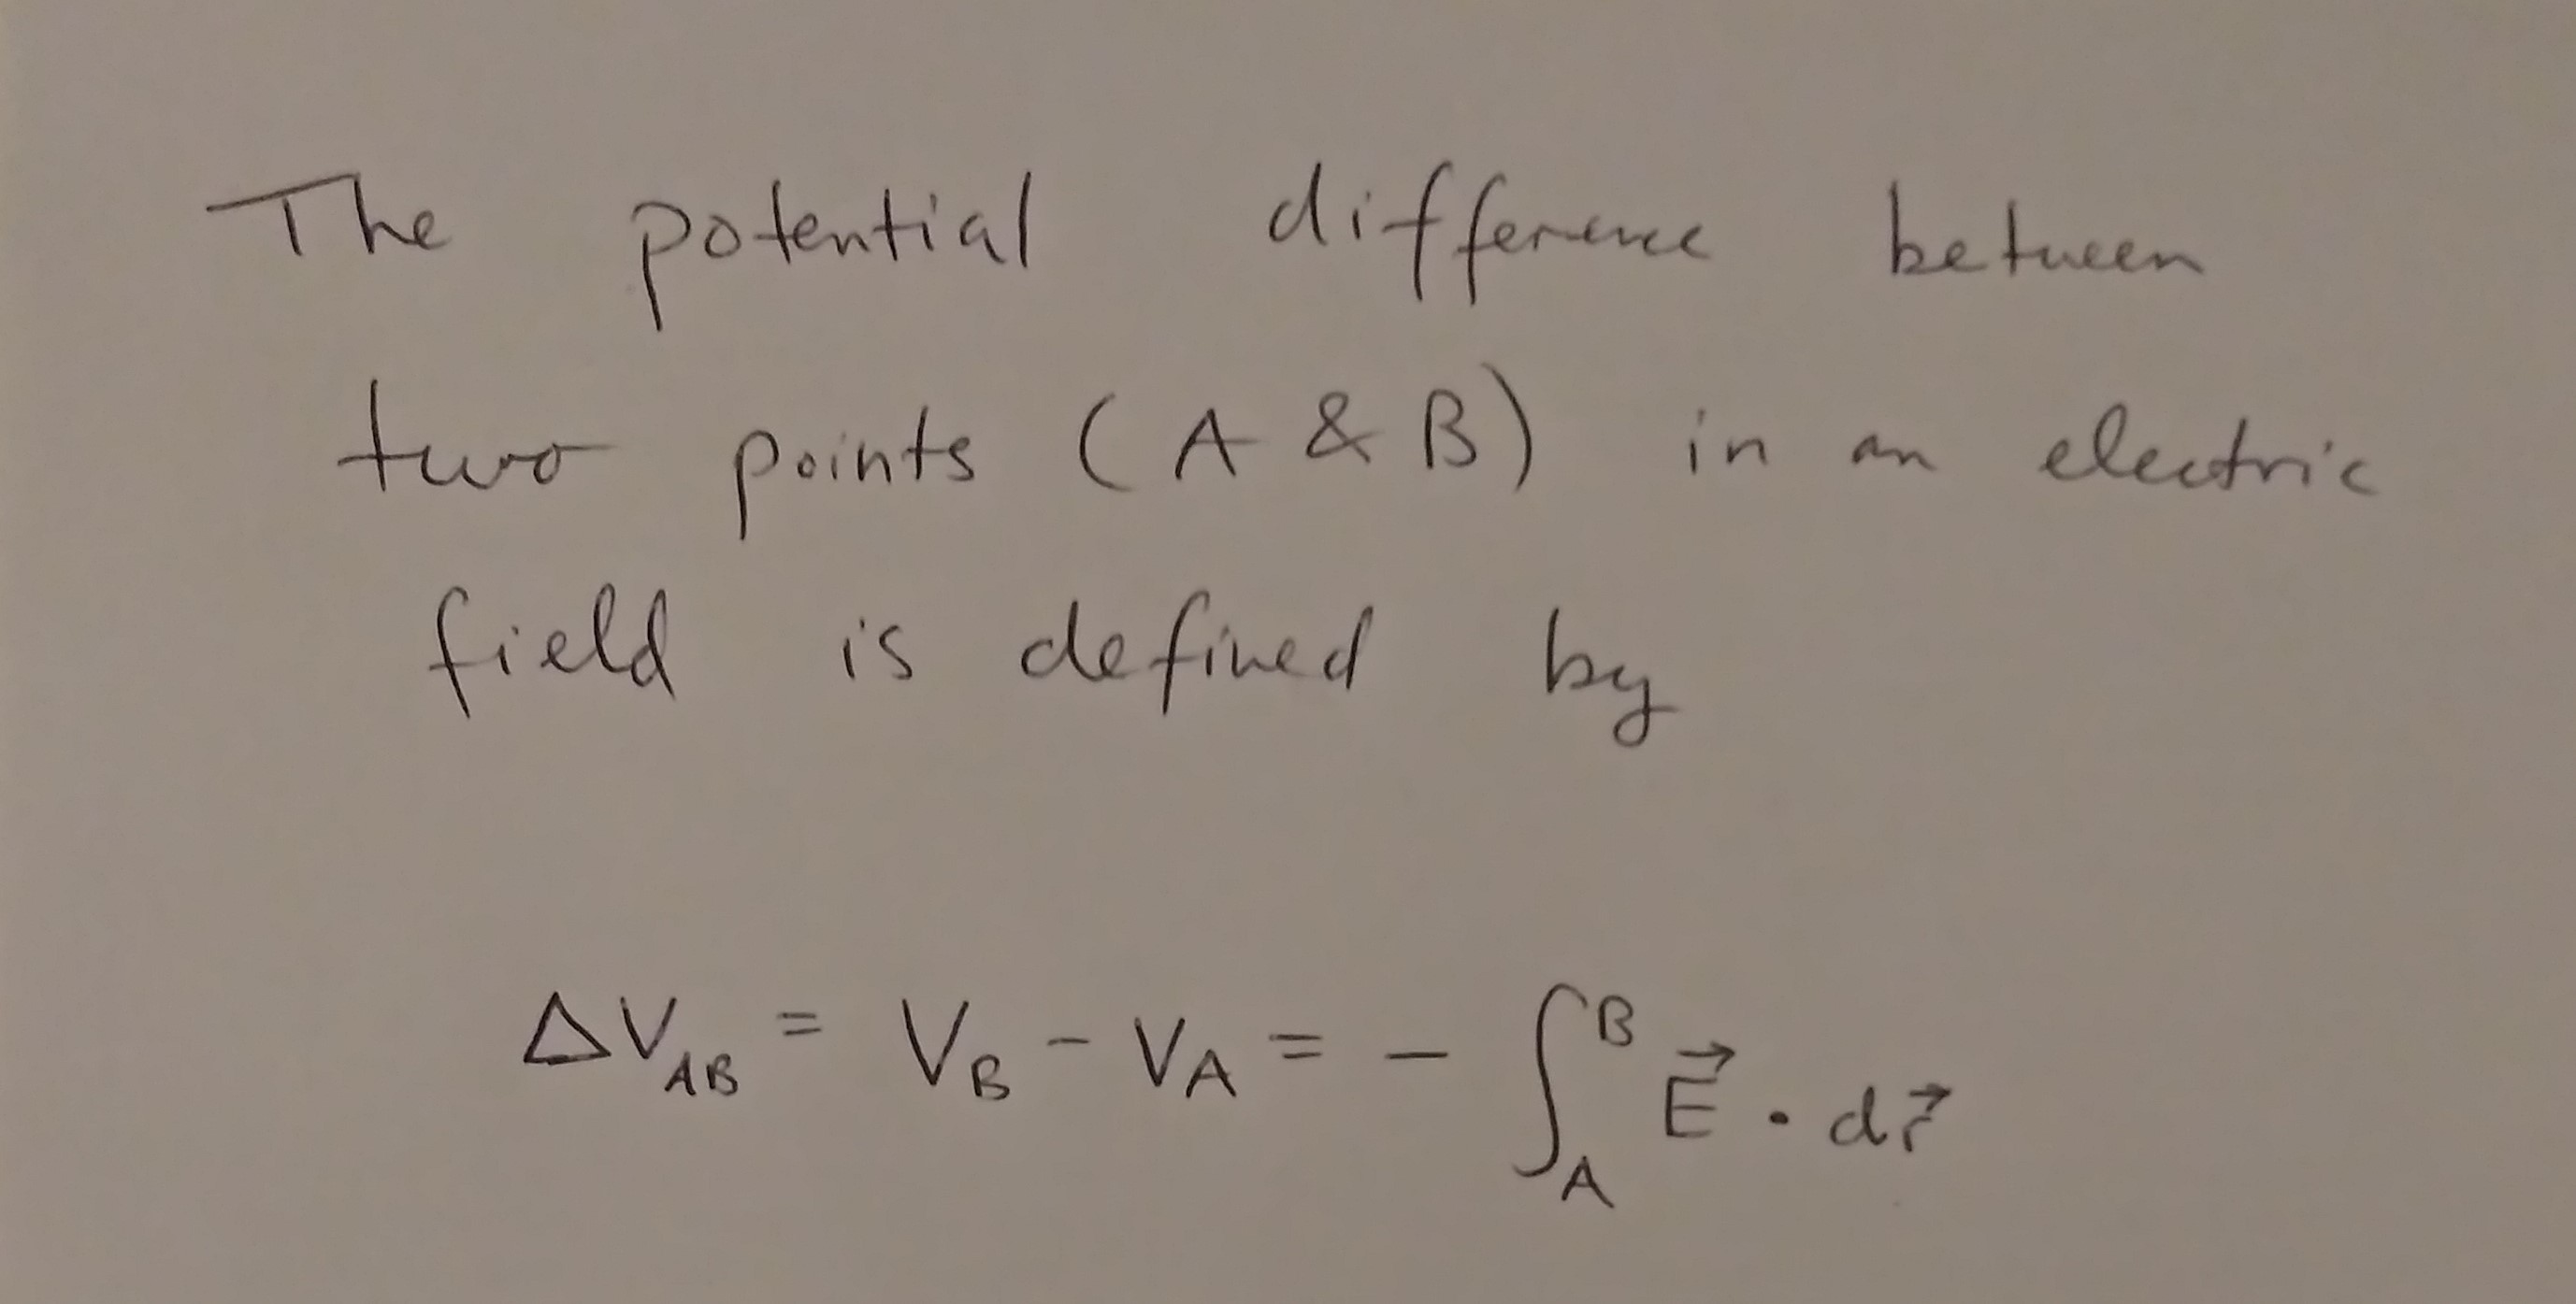 The potential difference between
two points (A & B) in an electric
field is defined by
ΔV_{AB} = V_B - V_A = - ∫_A^B \vec{E} · d\vec{r}